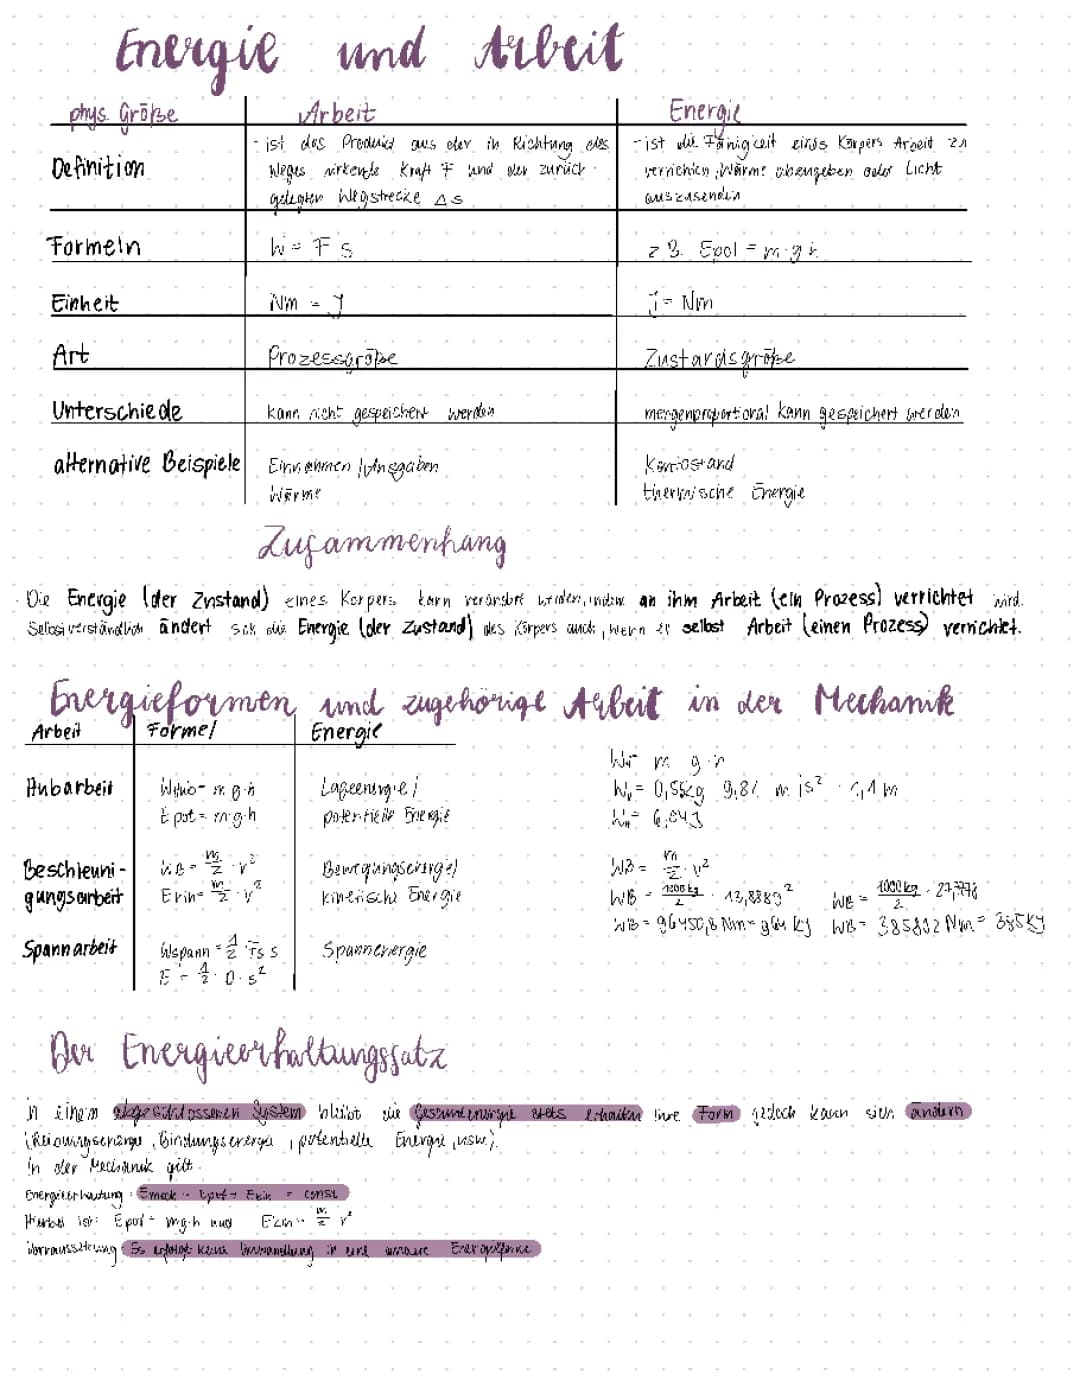 Energie und Arbeit
phys. Größe Arbeit Energie
Definition
- ist das Produkt aus der in Richtung des
Weges wirkende Kraft F und der zurück-
gelegten Wegstrecke Δs
- ist die Fähigkeit eines Körpers Arbeit zu
verrichten, Wärme abzugeben oder Licht
auszusenden
Formeln W = F s z B. Epot = m·g·h
Einheit Nm = J J = Nm
Art Prozessgröße Zustandsgröße
Unterschiede kann nicht gespeichert werden mengenproportional kann gespeichert werden
alternative Beispiele Einnahmen / Ausgaben Kontostand
Wärme thermische Energie
Zusammenhang
Die Energie (der Zustand) eines Körpers kann verändert werden, indem an ihm Arbeit (ein Prozess) verrichtet wird.
Selbstverständlich ändert sich die Energie (der Zustand) des Körpers auch, wenn er selbst Arbeit (einen Prozess) verrichtet.
Energieformen und zugehörige Arbeit in der Mechanik
Arbeit Formel Energie
Hubarbeit WHub = m·g·h Lageenergie /
Epot = m·g·h potentielle Energie
Beschleuni- WB = m/2 · v² Bewegungsenergie /
gungsarbeit Ekin = m/2 · v² kinetische Energie
Spannarbeit Wspann = 1/2 Fs s Spannenergie
E = 1/2 · D · s²
m g·h
0,55kg 9,81 m/s² · 1,1 m
WB = m/2 · v²
WB = 1000kg/2 · 13,8889² WB = 1000kg/2 · 27,7778
WB = 96450,8 Nm = 964 kJ WB = 385802 Nm = 385kJ
Der Energieerhaltungssatz
In einem abgeschlossenen System bleibt die Gesamtenergie stets erhalten ihre Form jedoch kann sich ändern
(Reibungsenergie, Bindungsenergie, potentielle Energie, usw.).
In der Mechanik gilt.
Energieerhaltung: Emech = Epot + Ekin = const
Hierbei ist: Epot = mg·h und Ekin = m/2 v²
Vorraussetzung Es erfolgt keine Umwandlung in eine andere Energieform